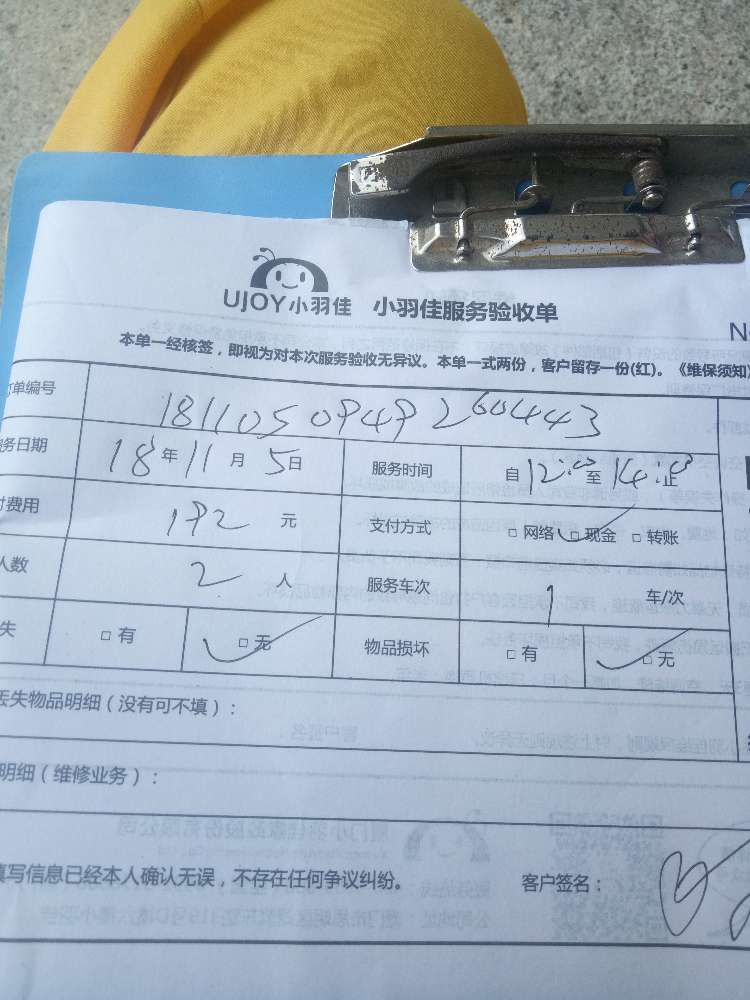 UJOY小羽佳 小羽佳服务验收单
N
本单一经核签，即视为对本次服务验收无异议。本单一式两份，客户留存一份(红)。《维保须知》
单编号 1811050949260443
务日期 18年11月5日 服务时间 自12:00至14:00止
付费用 192元 支付方式 □网络 □现金 □转账
人数 2人 服务车次 1 车/次
失 □有 □无 物品损坏 □有 □无
丢失物品明细（没有可不填）：
明细（维修业务）：
填写信息已经本人确认无误，不存在任何争议纠纷。 客户签名：